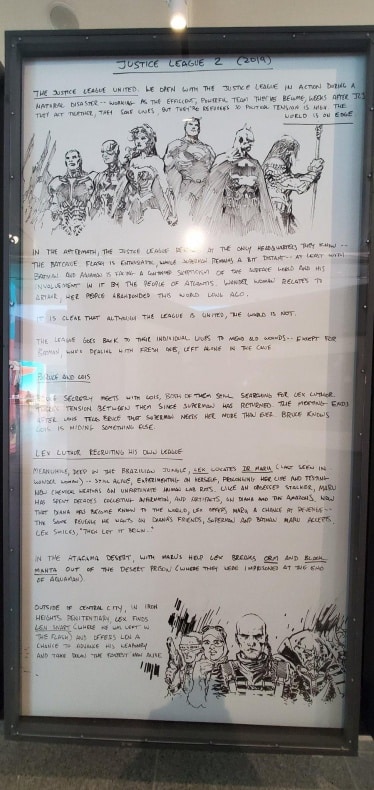 JUSTICE LEAGUE 2 (2019)
THE JUSTICE LEAGUE UNITED. WE OPEN WITH THE JUSTICE LEAGUE IN ACTION DURING A
NATURAL DISASTER -- WORKING AS THE EFFICIENT, POWERFUL TEAM THEY'VE BECOME, WEEKS AFTER JL1
THEY ACT TOGETHER, THEY SAVE LIVES BUT THEY'RE SO POLITICAL TENSION IS HIGH. THE
WORLD IS ON EDGE
IN THE AFTERMATH, THE JUSTICE LEAGUE AT THE ONLY HEADQUARTERS THEY KNOW --
THE BATCAVE. FLASH IS ENTHUSIASTIC, WHILE SUPERMAN REMAINS A BIT DISTANT -- AT LEAST WITH
BATMAN AND AQUAMAN IS FACING A CONTINUED SKEPTICISM OF THE SURFACE WORLD AND HIS
INVOLVEMENT IN IT BY THE PEOPLE OF ATLANTIS. WONDER WOMAN RELATES TO
ARTHUR, HER PEOPLE ABANDONED THIS WORLD LONG AGO.
IT IS CLEAR THAT ALTHOUGH THE LEAGUE IS UNITED, THE WORLD IS NOT.
THE LEAGUE GOES BACK TO THEIR INDIVIDUAL LIVES TO MEND OLD WOUNDS -- EXCEPT FOR
BATMAN WHO'S DEALING WITH FRESH ONES, LEFT ALONE IN THE CAVE
BRUCE AND LOIS
BRUCE SECRETLY MEETS WITH LOIS, BOTH OF THEM STILL SEARCHING FOR LEX LUTHOR.
TENSION BETWEEN THEM SINCE SUPERMAN HAS RETURNED. THE MEETING ENDS
AFTER LOIS TELLS BRUCE THAT SUPERMAN NEEDS HER MORE THAN EVER. BRUCE KNOWS
LOIS IS HIDING SOMETHING ELSE.
LEX LUTHOR RECRUITING HIS OWN LEAGUE
MEANWHILE, DEEP IN THE BRAZILIAN JUNGLE, LEX LOCATES DR MARU (LAST SEEN IN
WONDER WOMAN) -- STILL ALIVE, EXPERIMENTING ON HERSELF, PROLONGING HER LIFE AND TESTING
NEW CHEMICAL WEAPONS ON UNFORTUNATE HUMAN LAB RATS. LIKE AN OBSESSED STALKER, MARU
HAS SPENT DECADES COLLECTING INFORMATION, AND ARTIFACTS, ON DIANA AND THE AMAZONS. NOW
THAT DIANA HAS BECOME KNOWN TO THE WORLD, LEX OFFERS MARU A CHANCE AT REVENGE --
THE SAME REVENGE HE WANTS ON DIANA'S FRIENDS, SUPERMAN AND BATMAN. MARU ACCEPTS.
LEX SMILES, "THEN LET IT BEGIN."
IN THE ATACAMA DESERT, WITH MARU'S HELP LEX BREAKS ORM AND BLACK
MANTA OUT OF THE DESERT PRISON (WHERE THEY WERE IMPRISONED AT THE END
OF AQUAMAN).
OUTSIDE OF CENTRAL CITY, IN IRON
HEIGHTS PENITENTIARY LEX FINDS
LEN SNART (WHERE HE WAS LEFT IN
THE FLASH) AND OFFERS LEN A
CHANCE TO ADVANCE HIS WEAPONRY
AND TAKE DOWN THE FASTEST MAN ALIVE.